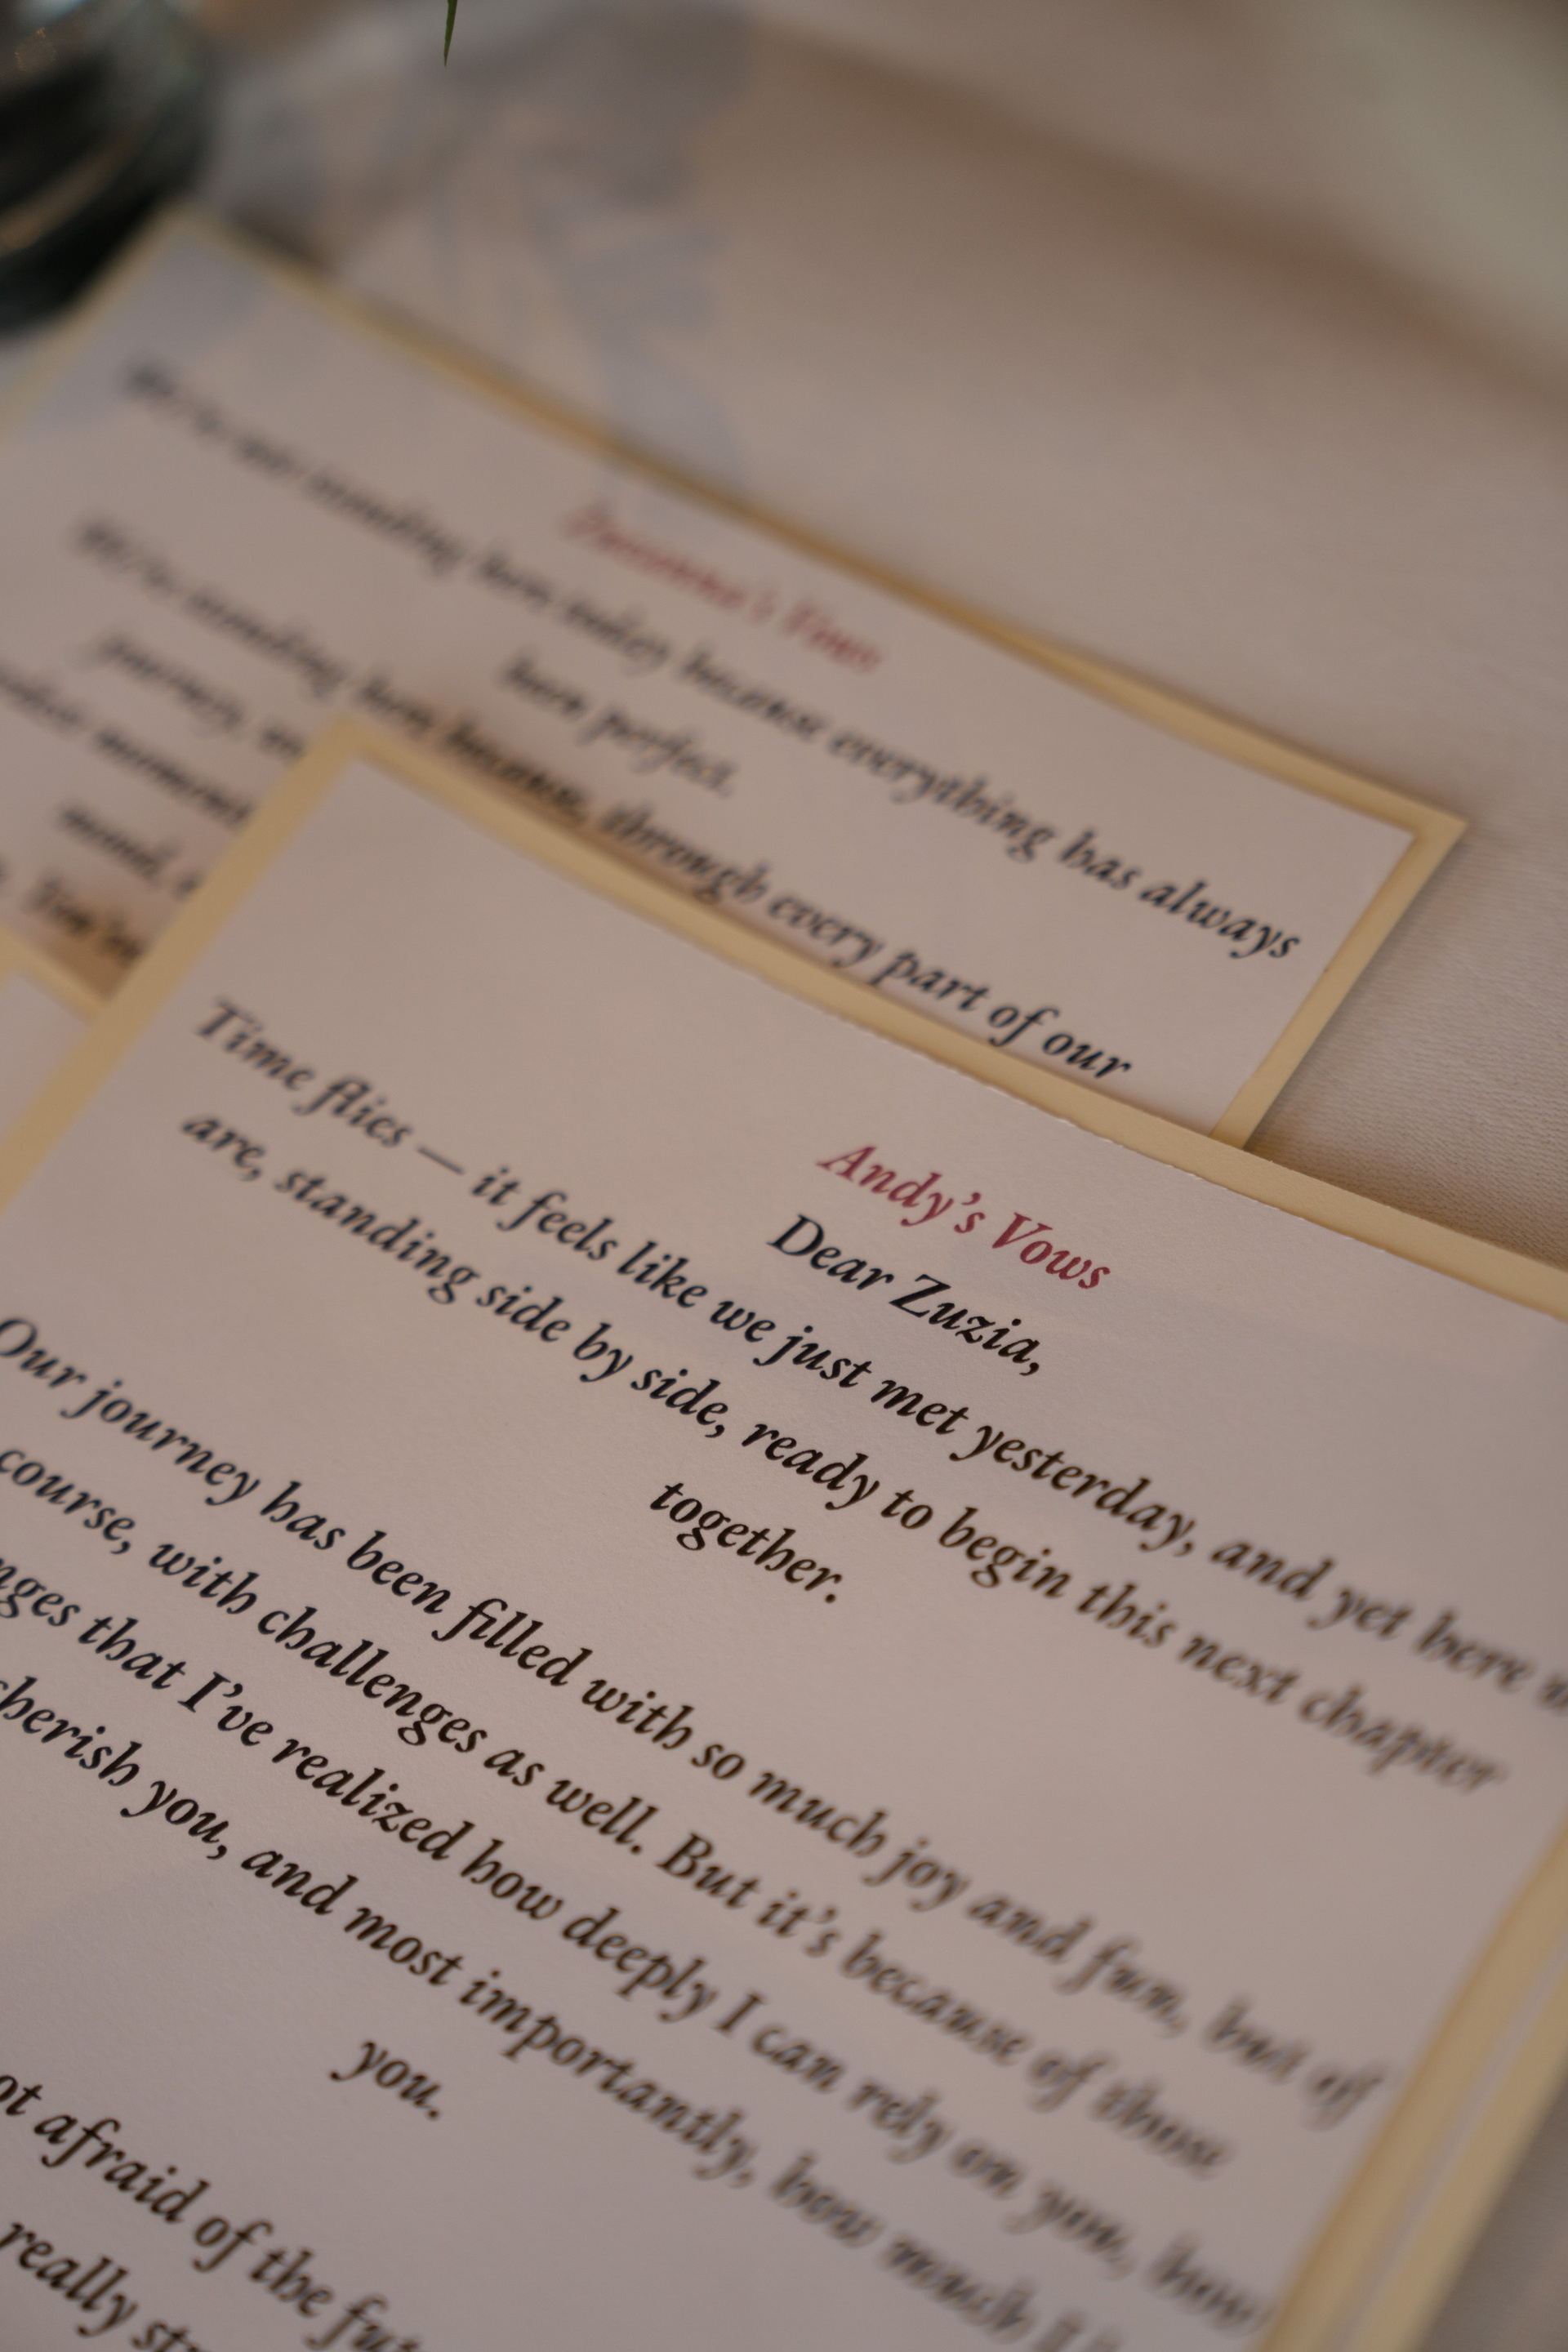 Zuzanna's Vows
We're not standing here today because everything has always
been perfect.
We're standing here because, through every part of our
journey,
moment
mood,
You've
Andy's Vows
Dear Zuzia,
Time flies — it feels like we just met yesterday, and yet here
are, standing side by side, ready to begin this next chapter
together.
Our journey has been filled with so much joy and fun, but of
course, with challenges as well. But it's because of those
that I've realized how deeply I can rely on you, how
cherish you, and most importantly, how much I
you.
afraid of the
really